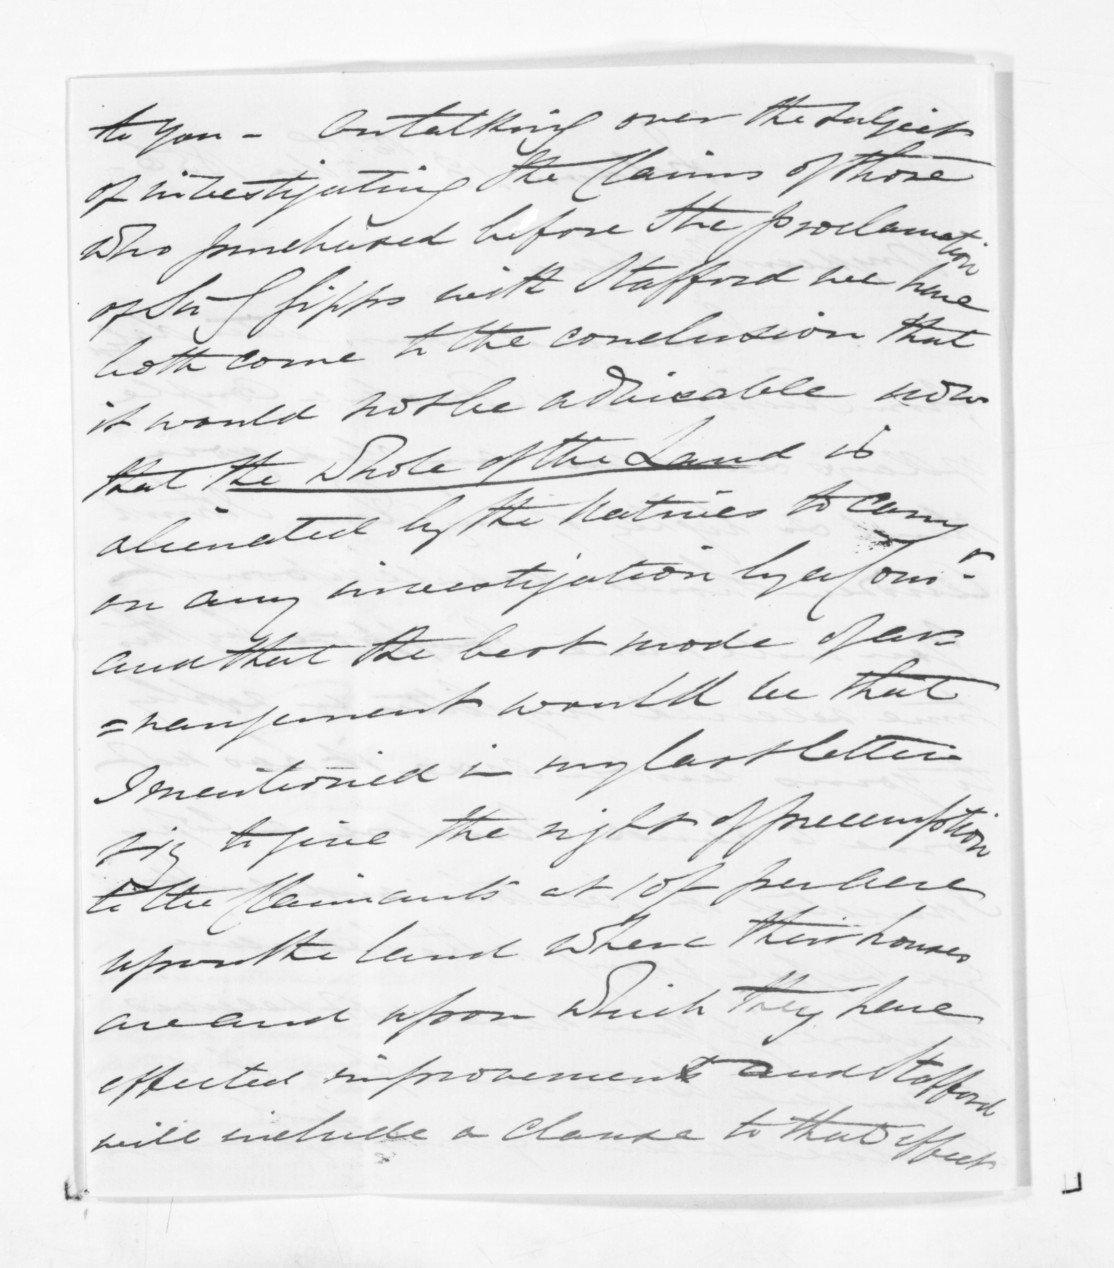 to you - On talking over the subject
of investigating the Claims of those
who purchased before the proclamation
of Sir G Gipps with Stafford we have
both come to the conclusion that
it would not be advisable now
that the whole of the Land is
alienated by the Natives to carry
on any investigation by a Com.r
and that the best mode of ar=
=rangement would be that
I mentioned in my last letter
viz to give the right of preemption
to the Claimants at 10/ per acre
upon the land where their houses
are and upon which they have
effected improvements and Stafford
will include a clause to that effect